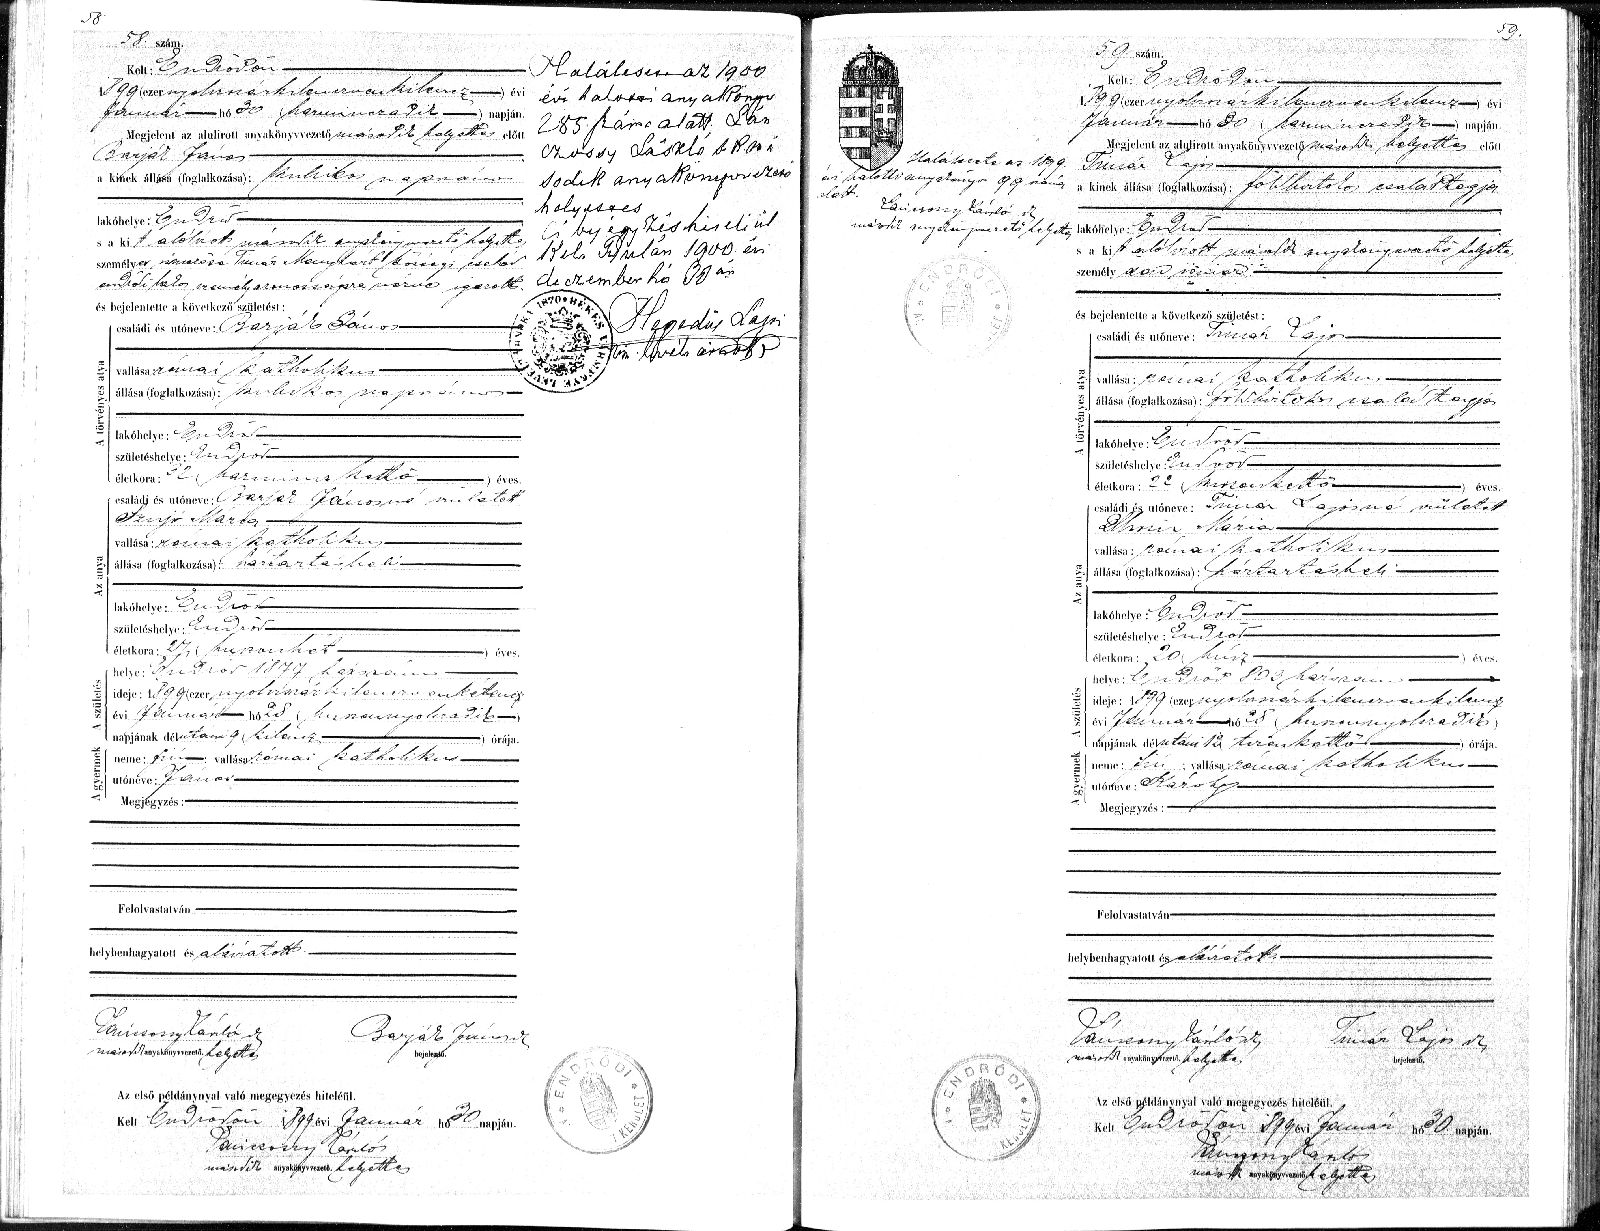 58
58. szám.
Kelt: Endrődön
1899 (ezernyolcszázkilencvenkilenc) évi
Január hó 30 (harmincadik) napján.
Megjelent az alulirott anyakönyvvezető második helyettes előtt
Barják János
a kinek állása (foglalkozása): kubikos napszámos
lakóhelye: Endrőd
s a ki t alólirott második anyakönyvvezető helyettes
személyes
és bejelentette a következő születést:
A törvényes atya
családi és utóneve: Barják János
vallása: római katholikus
állása (foglalkozása): kubikos napszámos
lakóhelye: Endrőd
születéshelye: Endrőd
életkora: 32 (harminckettő) éves.
Az anya
családi és utóneve: Barják Jánosné született
Mária
vallása: római katholikus
állása (foglalkozása): háztartásbeli
lakóhelye: Endrőd
születéshelye: Endrőd
életkora: 27 (huszonhét) éves.
A születés
helye: Endrőd 1877 házszám
ideje: 1899 (ezernyolcszázkilencvenkilenc)
évi Január hó 28 (huszonnyolcadik)
napjának délutáni 9 (kilenc) órája.
A gyermek
neme: fiú; vallása: római katholikus
utóneve: János
Megjegyzés:
Felolvastatván
helybenhagyatott és aláiratott.
Lánczsony László
második anyakönyvvezető. helyettes
Barják János
bejelentő.
Az első példánynyal való megegyezés hiteléül.
Kelt Endrődön 1899 évi Január hó 30 napján.
László
második anyakönyvvezető. helyettes
Halálesete az 1900
évi halotti anyakönyv
285 száma alatt.
László s k má
sodik anyakönyvvezető
helyettes
Kelt Gyulán 1900 évi
deczember hó
Hegedüs Lajos
1870 BÉKÉS VÁRMEGYE LEVÉLTÁRA
ENDRŐDI KERÜLET
59.
59. szám.
Kelt: Endrődön
1899 (ezernyolcszázkilencvenkilenc) évi
Január hó 30 (harmincadik) napján.
Megjelent az alulirott anyakönyvvezető második helyettes előtt
Timár Lajos
a kinek állása (foglalkozása): földbirtokos családtagja
lakóhelye: Endrőd
s a ki t alólirott második anyakönyvvezető helyettes
személyesen ismer.
és bejelentette a következő születést:
A törvényes atya
családi és utóneve: Timár Lajos
vallása: római katholikus
állása (foglalkozása): földbirtokos családtagja
lakóhelye: Endrőd
születéshelye: Endrőd
életkora: 22 (huszonkettő) éves.
Az anya
családi és utóneve: Timár Lajosné született
Mária
vallása: római katholikus
állása (foglalkozása): háztartásbeli
lakóhelye: Endrőd
születéshelye: Endrőd
életkora: 20 (húsz) éves.
A születés
helye: Endrőd házszám
ideje: 1899 (ezernyolcszázkilencvenkilenc)
évi Január hó 28 (huszonnyolcadik)
napjának délutáni 12 (tizenkettő) órája.
A gyermek
neme: fiú; vallása: római katholikus
utóneve: Károly
Megjegyzés:
Felolvastatván
helybenhagyatott és aláiratott
László
második anyakönyvvezető. helyettes
Timár Lajos
bejelentő.
Az első példánynyal való megegyezés hiteléül.
Kelt Endrődön 1899 évi Január hó 30 napján.
László
második anyakönyvvezető. helyettes
Halálesete az 1899
évi halotti anyakönyv 99 száma
alatt.
László
második anyakönyvvezető helyettes
ENDRŐDI
ENDRŐDI KERÜLET